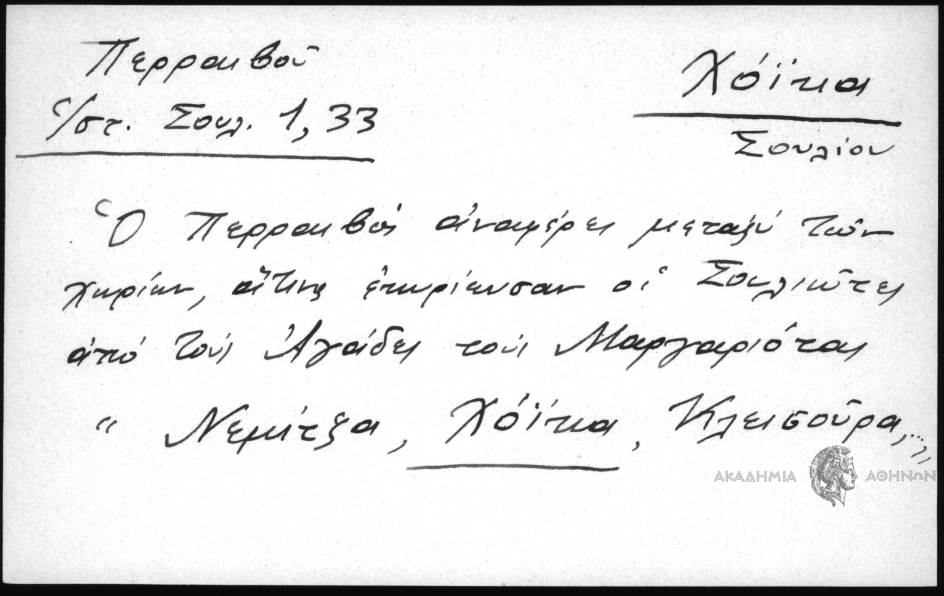 Περραιβοῦ
Ἱστ. Σουλ. 1, 33
Χόϊκα
Σουλίου
Ὁ Περραιβὸς ἀναφέρει μεταξὺ τῶν
χωρίων, ἅτινα ἐκυρίευσαν οἱ Σουλιῶται
ἀπὸ τοὺς Ἀγάδες τοὺς Μαργαριότας
" Νεμίτζα, Χόϊκα, Κλεισοῦρα,...",
ΑΚΑΔΗΜΙΑ ΑΘΗΝΩΝ